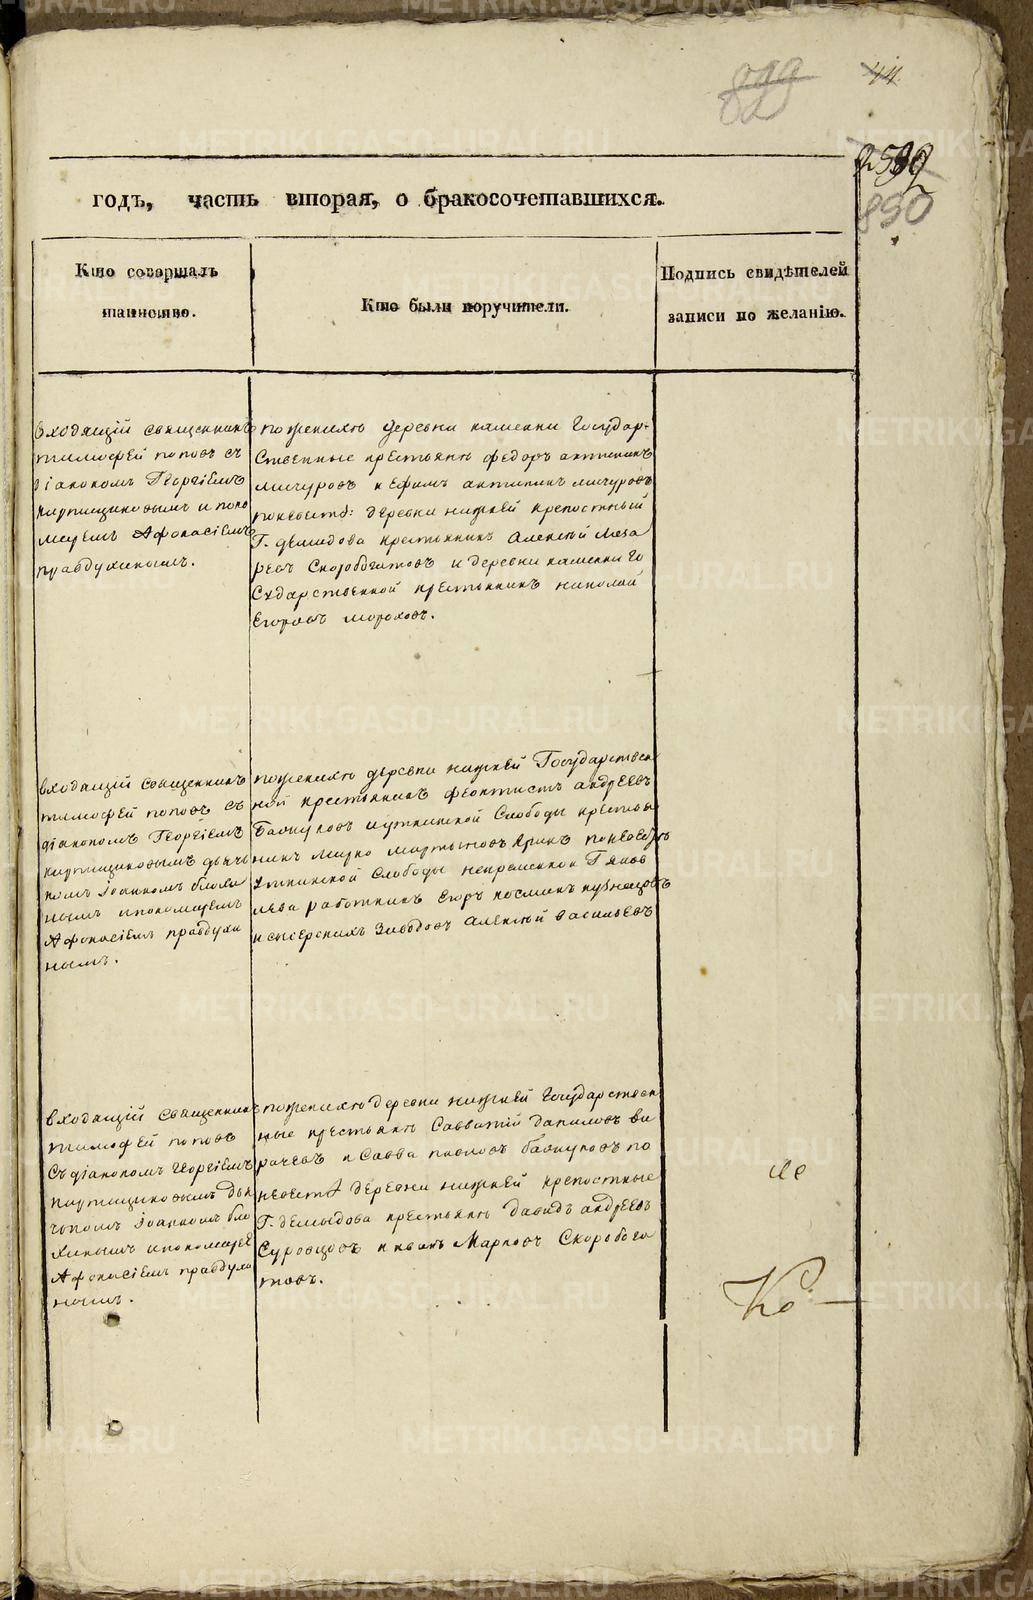 899
44
годъ, часть вторая, о бракосочетавшихся.
890
Кто совершалъ
таинство.
Кто были поручители.
Подпись свидѣтелей
записи по желанію.
Входящій священникъ
тимофей поповъ съ
діакономъ Георгіемъ
и поно
маремъ Афонасіемъ
правдухинымъ.
по женихѣ деревни каменки Государ-
ственные крестьяне федоръ антипинъ
мичуровъ и Ефимъ антипинъ мичуровъ
по невѣстѣ: деревни нижней крепостный
Г. демидова крестьянинъ Алексѣй Лаза
ревъ Скоробогатовъ и деревни каменки Го
сударственной крестьянинъ николай
Егоровъ мороховъ.
входящій священникъ
тимофей поповъ съ
діакономъ Георгіемъ
дьяч
комъ Іоанномъ блохи
нымъ и пономаремъ
Афонасіемъ правдухи
нымъ.
по женихѣ деревни нижней Государствен
ной крестьянинъ феоктистъ андреевъ
уткинской Слободы крестья
нинъ марко мартыновъ по невѣстѣ
уткинской Слободы непременной Г Яков
лева работникъ Егоръ козминъ кузнецовъ
и сысерскихъ Заводовъ Алексѣй васильевъ
входящій священникъ
тимофей поповъ
Съ діакономъ Георгіемъ
дья
чкомъ Іоанномъ бло
хинымъ и пономаре
Афонасіемъ правдухи
нымъ.
по женихѣ деревни нижней Государствен
ные крестьяне Савватій даниловъ ви
рачевъ и Савва павловъ по
невестѣ деревни нижней крепостные
Г. демидова крестьяне давидъ андреевъ
Суровцовъ и иванъ Марковъ Скоробога
товъ.